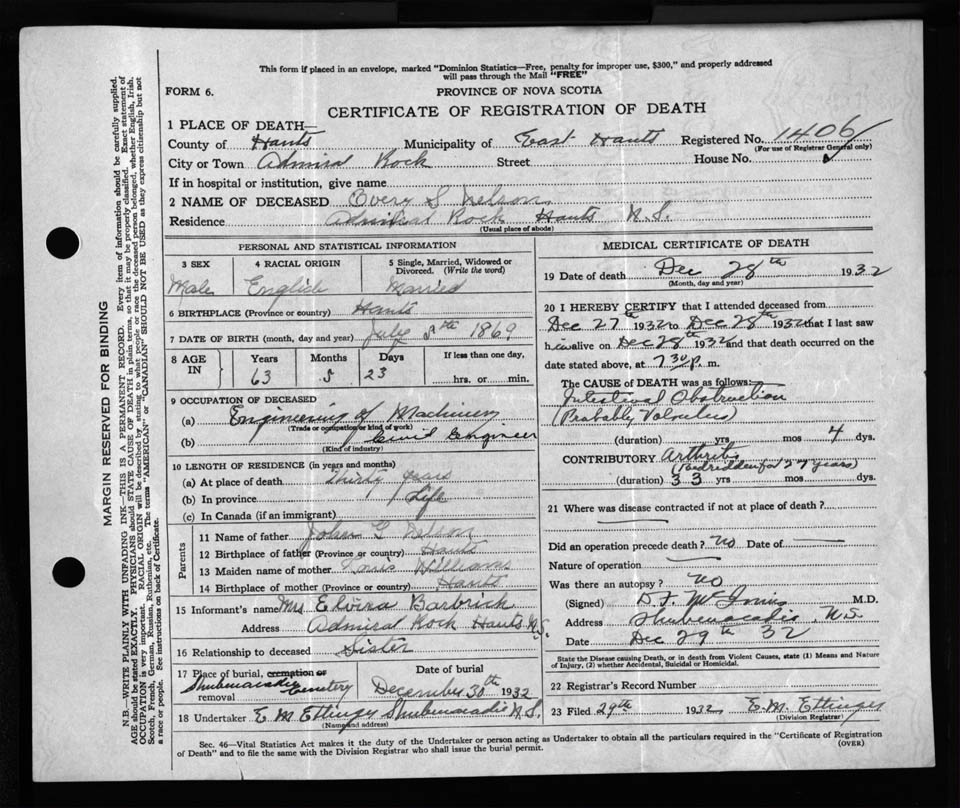 This form if placed in an envelope, marked "Dominion Statistics—Free, penalty for improper use, $300," and properly addressed
will pass through the Mail "FREE"
FORM 6.
PROVINCE OF NOVA SCOTIA
CERTIFICATE OF REGISTRATION OF DEATH
1 PLACE OF DEATH—
County of Hants Municipality of East Hants Registered No. 1406
(For use of Registrar General only)
City or Town Admiral Rock Street House No.
If in hospital or institution, give name
2 NAME OF DECEASED S Nelson
Residence Admiral Rock Hants N.S.
(Usual place of abode)
PERSONAL AND STATISTICAL INFORMATION
3 SEX 4 RACIAL ORIGIN 5 Single, Married, Widowed or
Divorced. (Write the word)
Male English Married
6 BIRTHPLACE (Province or country) Hants
7 DATE OF BIRTH (month, day and year) July 5th 1869
8 AGE IN Years Months Days If less than one day,
63 5 23 hrs. or min.
9 OCCUPATION OF DECEASED
(a) Engineering of Machinery
(Trade or occupation or kind of work)
(b) Civil Engineer
(Kind of industry)
10 LENGTH OF RESIDENCE (in years and months)
(a) At place of death Thirty years
(b) In province Life
(c) In Canada (if an immigrant)
Parents
11 Name of father John G Nelson
12 Birthplace of father (Province or country) Hants
13 Maiden name of mother Williams
14 Birthplace of mother (Province or country) Hants
15 Informant's name Mrs Elvira Barbrick
Address Admiral Rock Hants N.S.
16 Relationship to deceased Sister
17 Place of burial, cremation or Date of burial
removal Shubenacadie Cemetery December 30th 1932
18 Undertaker E M Ettinger Shubenacadie N.S.
(Name and address)
MEDICAL CERTIFICATE OF DEATH
19 Date of death Dec 28th 1932
(Month, day and year)
20 I HEREBY CERTIFY that I attended deceased from
Dec 27th 1932 to Dec 28th 1932 that I last saw
him alive on Dec 28th 1932 and that death occurred on the
date stated above, at 7 30 p.m.
The CAUSE of DEATH was as follows:
Intestinal Obstruction
(Probably Volvulus)
(duration) yrs mos 4 dys.
CONTRIBUTORY Arthritis
(Bedridden for 27 years)
(duration) 33 yrs mos dys.
21 Where was disease contracted if not at place of death?
Did an operation precede death? No Date of —
Nature of operation —
Was there an autopsy? No
(Signed) D.F. McInnis M.D.
Address Shubenacadie N.S.
Date Dec 29th 32
State the Disease causing Death, or in death from Violent Causes, state (1) Means and Nature
of Injury, (2) whether Accidental, Suicidal or Homicidal.
22 Registrar's Record Number
23 Filed 29th 1932 E.M. Ettinger
(Division Registrar)
Sec. 46—Vital Statistics Act makes it the duty of the Undertaker or person acting as Undertaker to obtain all the particulars required in the "Certificate of Registration
of Death" and to file the same with the Division Registrar who shall issue the burial permit. (OVER)
MARGIN RESERVED FOR BINDING
N.B.—WRITE PLAINLY WITH UNFADING INK—THIS IS A PERMANENT RECORD. Every item of information should be carefully supplied.
AGE should be stated EXACTLY. PHYSICIANS should STATE CAUSE OF DEATH in plain terms, so that it may be properly classified. Exact statement of
OCCUPATION is very important. RACIAL ORIGIN will be described by stating to what people or race the deceased person belonged, whether English, Irish,
Scotch, French, German, Russian, Ruthenian, etc. The terms "AMERICAN" or "CANADIAN" SHOULD NOT BE USED as they express citizenship but not
a race or people. See instructions on back of Certificate.